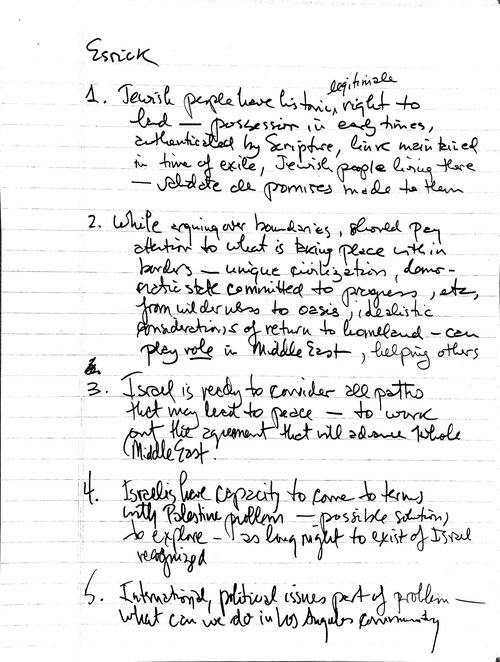 Esrick
legitimate
1. Jewish people have historic, right to
land — possession in early times,
authenticated by Scripture, link maintained
in time of exile, Jewish people living there
— validate all promises made to them
2. While arguing over boundaries, should pay
attention to what is taking place within
borders — unique civilization, demo-
cratic state committed to progress, etc,
from wilderness to oasis, idealistic
considerations of return to homeland — can
play role in Middle East, helping others
3. Israel is ready to consider all paths
that may lead to peace — to work
out the agreement that will advance whole
Middle East.
4. Israelis have capacity to come to terms
with Palestine problem — possible solutions
to explore — as long right to exist of Israel
recognized
5. International, political issues part of problem —
what can we do in Los Angeles community